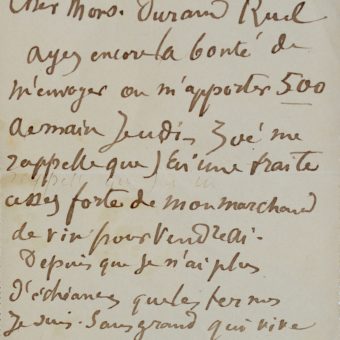 Cher Mons. Durand Ruel
ayez encore la bonté de
m'envoyer ou m'apporter 500
demain Jeudi. Zoé me
rappelle que j'ai une traite
assez forte de mon marchand
de vin pour Vendredi.
Depuis que je n'ai plus
d'échéances que les termes
je suis sans grand qui vive